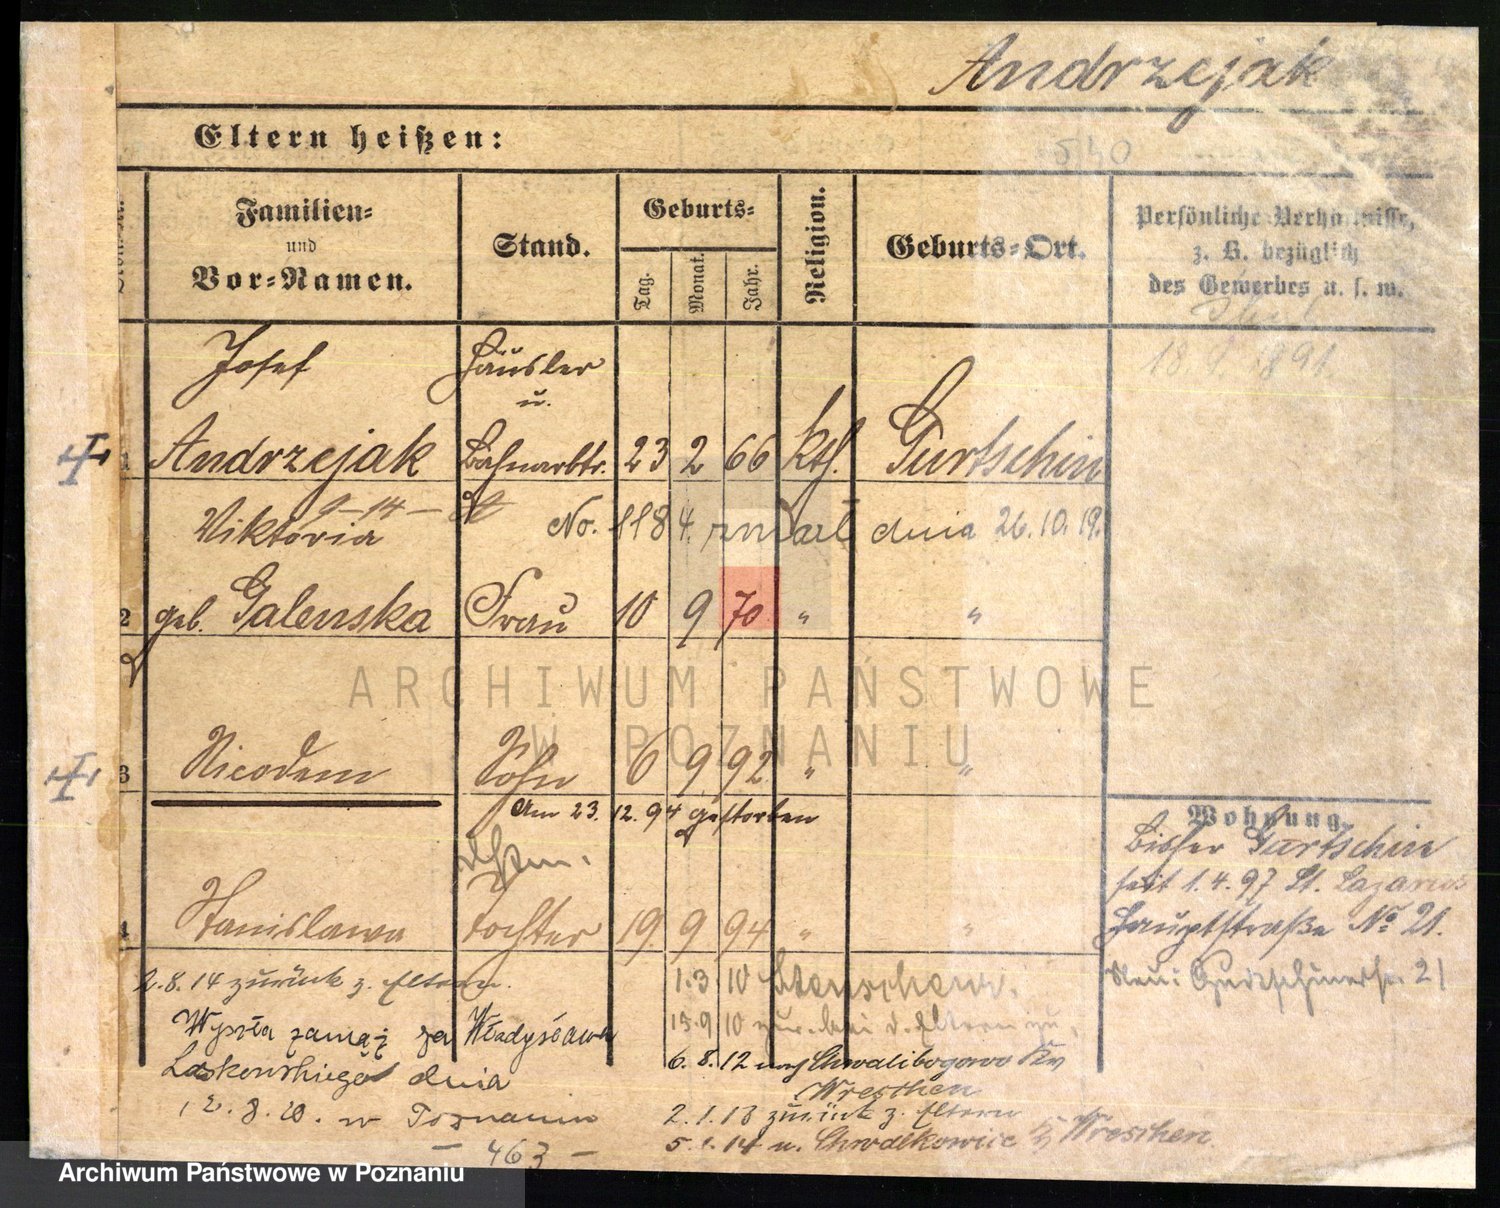 Andrzejak
540
Eltern heißen:
Familien-
und
Vor-Namen.
Stand.
Geburts-
Tag.
Monat.
Jahr.
Religion.
Geburts-Ort.
Persönliche Verhältnisse,
z. B. bezüglich
des Gewerbes u. s. w.
18. 1. 1891.
Josef Häusler
u.
1 Andrzejak Bahnarbtr. 23 2 66 kth. Gurtschin
Viktoria No. 1184. zmarł dnia 26.10.19.
2 geb. Galenska Frau 10 9 70 " "
ARCHIWUM PAŃSTWOWE
W POZNANIU
3 Nicodem Sohn 6 9 92 " "
Am 23. 12. 94 gestorben
Wohnung.
Bisher Gurtschin
seit 1.4.97 St. Lazarus
Hauptstraße No 21.
Neu: Gurtschinerstr. 21
4 Stanislawa Tochter 19. 9 94 " "
2.8.14 zurück z. Eltern.
Wyszła zamąż za Władysława
Laskowskiego dnia
12.8.20. w Poznaniu
- 463 -
1.3.10 Stenschewo.
15.9.10 zur. bei d. Eltern
6.8.12 nach Chwalibogowo Kr.
Wreschen
2.1.13 zurück z. Eltern
5.1.14 n. Chwalkowice Kr. Wreschen
Archiwum Państwowe w Poznaniu